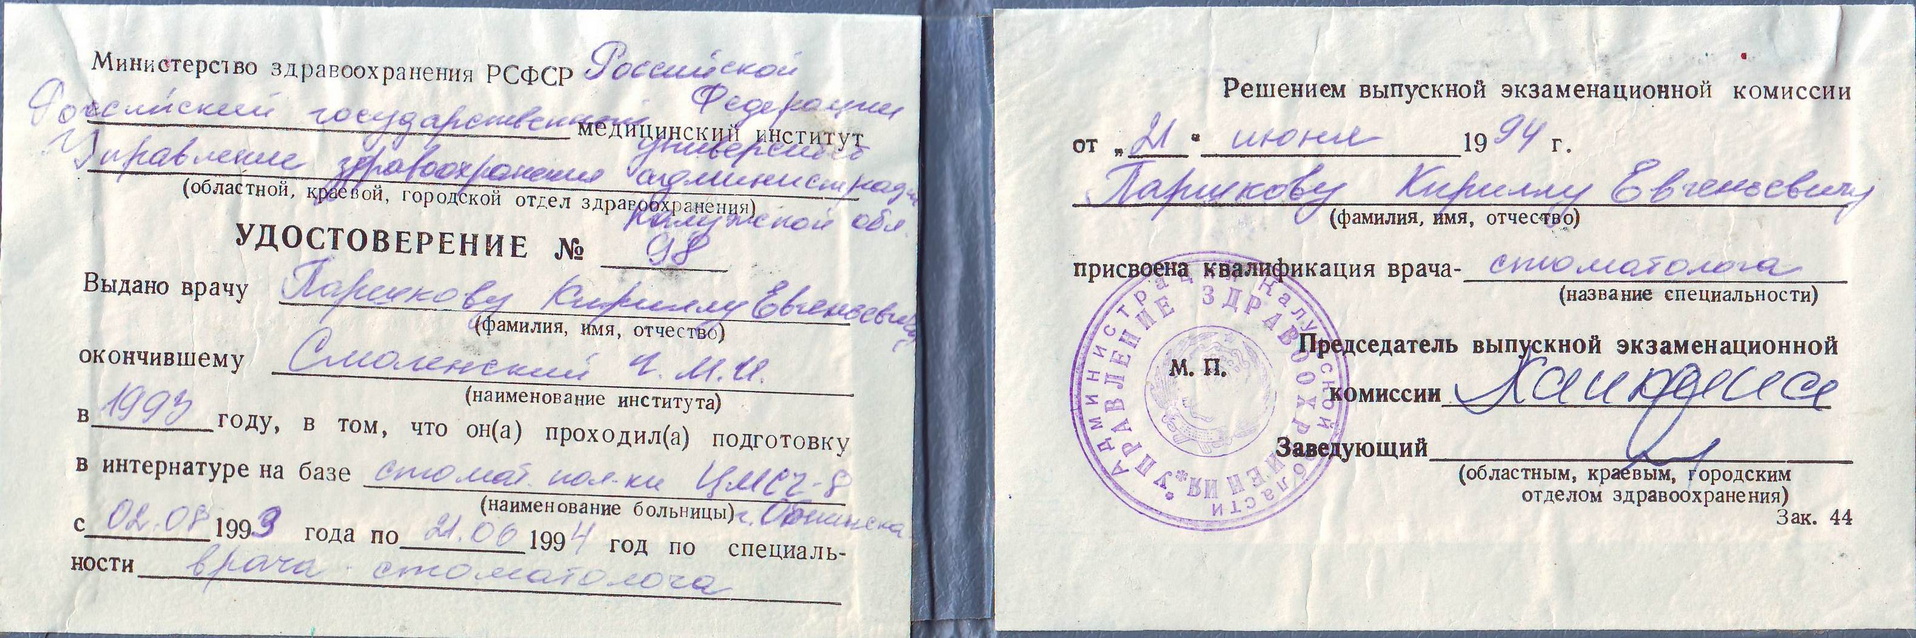 Министерство здравоохранения РСФСР Российской
Федерации
Российский государственный медицинский институт
университет
Управление здравоохранения администрации
(областной, краевой, городской отдел здравоохранения)
Калужской обл.
УДОСТОВЕРЕНИЕ № 98
Выдано врачу Паршкову Кириллу Евгеньевичу
(фамилия, имя, отчество)
окончившему Смоленский Г.М.И.
(наименование института)
в 1993 году, в том, что он(а) проходил(а) подготовку
в интернатуре на базе стомат. пол-ки ЦМСЧ-8
(наименование больницы) г. Обнинска
с 02.08 1993 года по 21.06 1994 год по специаль-
ности врача-стоматолога
Решением выпускной экзаменационной комиссии
от „21" июня 1994 г.
Паршкову Кириллу Евгеньевичу
(фамилия, имя, отчество)
присвоена квалификация врача- стоматолога
(название специальности)
Председатель выпускной экзаменационной
М. П.
комиссии
Заведующий
(областным, краевым, городским
отделом здравоохранения)
Зак. 44
Администрация Калужской области
УПРАВЛЕНИЕ ЗДРАВООХРАНЕНИЯ